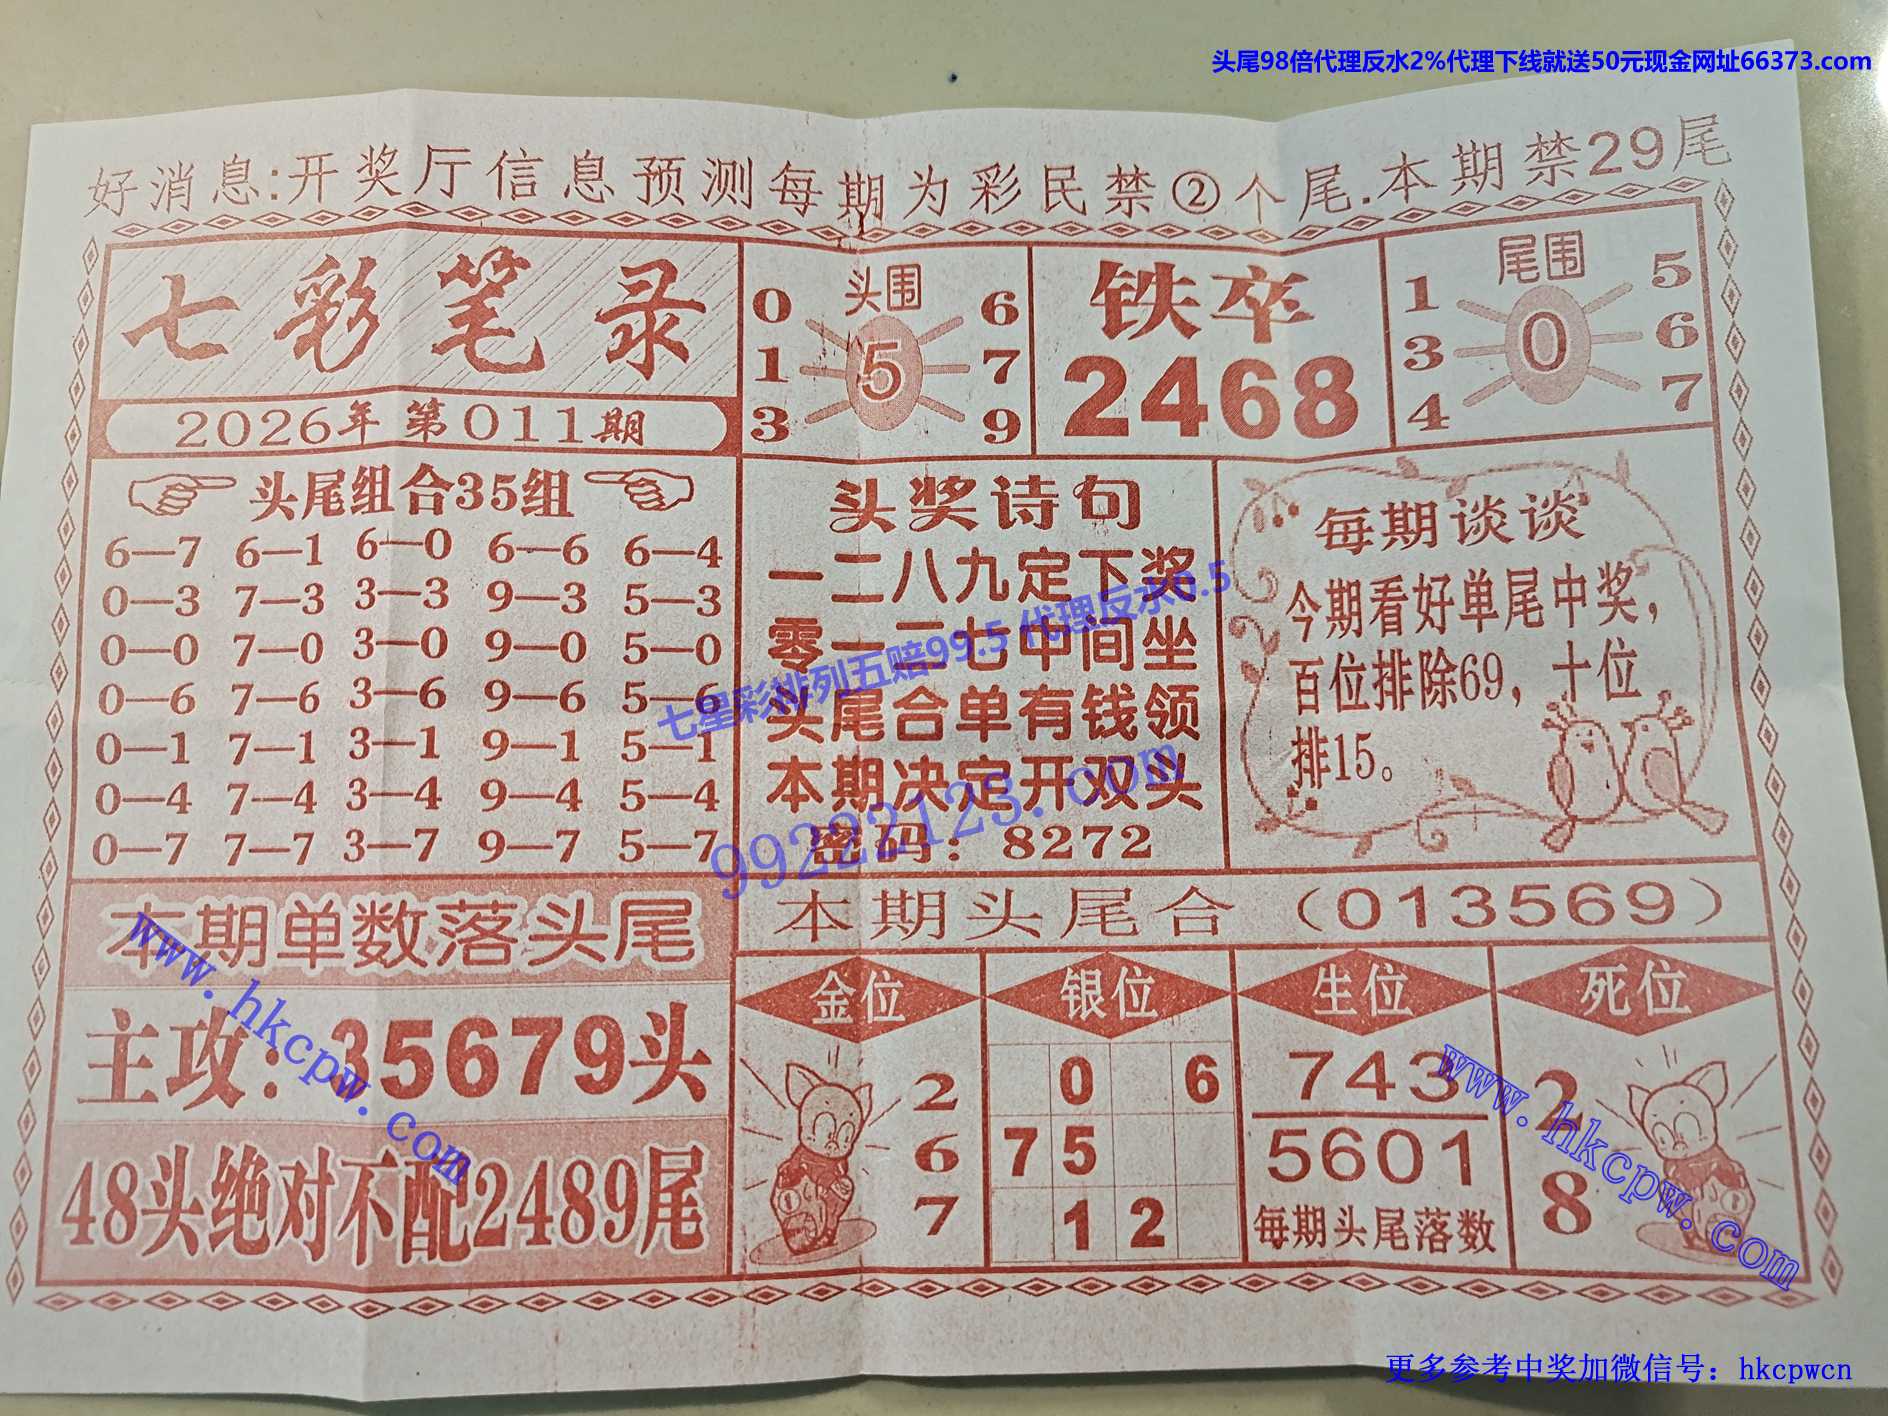 头尾98倍代理反水2%代理下线就送50元现金网址66373.com
好消息:开奖厅信息预测每期为彩民禁②个尾.本期禁29尾
七彩笔录
2026年第011期
头围
0 6
1 5 7
3 9
铁卒
2468
尾围
1 5
3 0 6
4 7
头尾组合35组
6—7 6—1 6—0 6—6 6—4
0—3 7—3 3—3 9—3 5—3
0—0 7—0 3—0 9—0 5—0
0—6 7—6 3—6 9—6 5—6
0—1 7—1 3—1 9—1 5—1
0—4 7—4 3—4 9—4 5—4
0—7 7—7 3—7 9—7 5—7
头奖诗句
一二八九定下奖
零一二七中间坐
头尾合单有钱领
本期决定开双头
密码：8272
七星彩排列五赔99.5 代理反水0.5
99222123.com
每期谈谈
今期看好单尾中奖，
百位排除69，十位
排15。
本期单数落头尾
主攻：35679头
48头绝对不配2489尾
www.hkcpw.com
本期头尾合（013569）
金位
2
6
7
银位
0 6
7 5
1 2
生位
743
5601
每期头尾落数
死位
2
8
www.hkcpw.com
更多参考中奖加微信号：hkcpwcn